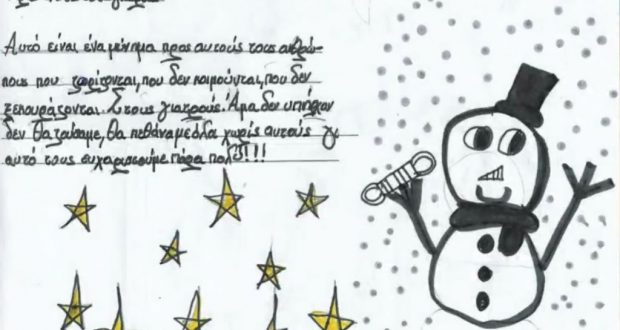 Αυτό είναι ένα μήνημα προς αυτούς τους ανθρώ-
πους που ζορίζονται, που δεν κοιμούνται, που δεν
ξεκουράζονται. Στους γιατρούς. Άμα δεν υπήρχαν
δεν θα ζούσαμε, θα πεθάναμε όλα χωρίς αυτούς γι
αυτό τους ευχαριστούμε πάρα πολύ!!!